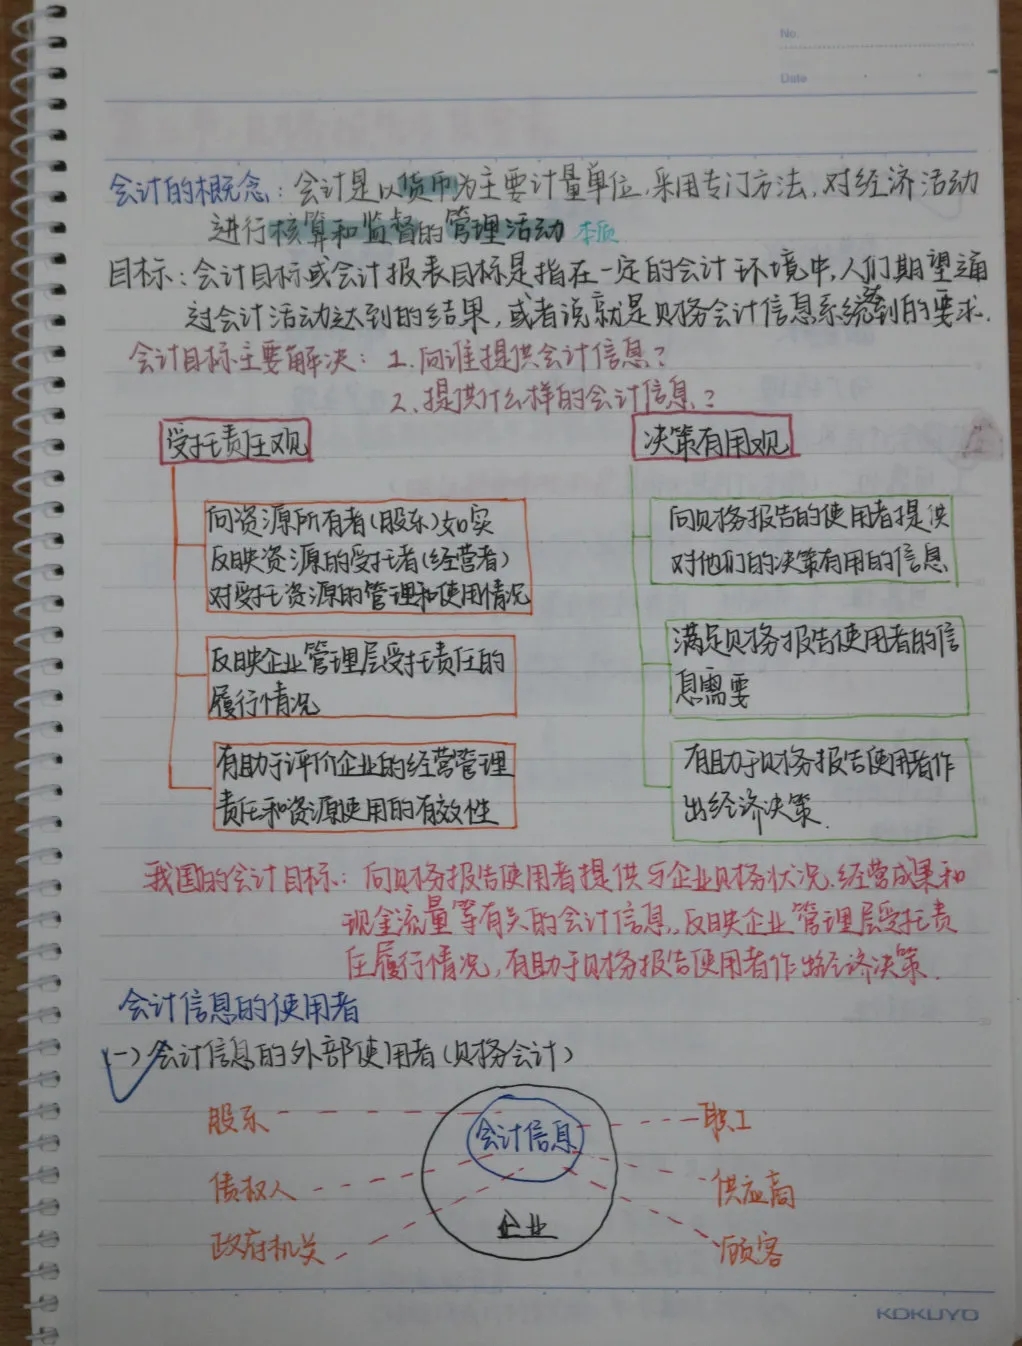 No.
Date
会计的概念：会计是以货币为主要计量单位，采用专门方法，对经济活动
进行核算和监督的管理活动 本质
目标：会计目标或会计报表目标是指在一定的会计环境中，人们期望通
过会计活动达到的结果，或者说就是财务会计信息系统要达到的要求．
会计目标主要解决：1.向谁提供会计信息？
2.提供什么样的会计信息？
受托责任观
决策有用观
向资源所有者(股东)如实
反映资源的受托者(经营者)
对受托资源的管理和使用情况
向财务报告的使用者提供
对他们的决策有用的信息
反映企业管理层受托责任的
履行情况
满足财务报告使用者的信
息需要
有助于评价企业的经营管理
责任和资源使用的有效性
有助于财务报告使用者作
出经济决策．
我国的会计目标：向财务报告使用者提供与企业财务状况、经营成果和
现金流量等有关的会计信息，反映企业管理层受托责
任履行情况，有助于财务报告使用者作出经济决策．
会计信息的使用者
(一)会计信息的外部使用者(财务会计)
股东
会计信息
职工
债权人
供应商
企业
政府机关
顾客
KOKUYO